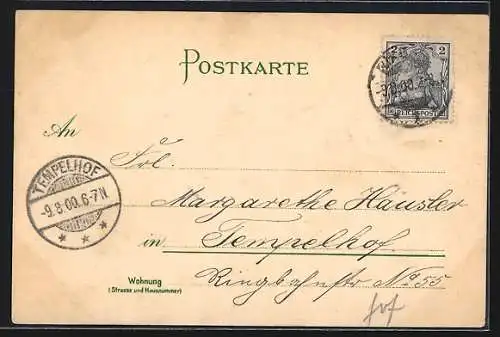 POSTKARTE
2 2
REICHSPOST
9.8.00.
An
Frl.
TEMPELHOF
-9.8.00.6-7N
Margarethe Häusler
in Tempelhof.
Wohnung
(Strasse und Hausnummer)
Ringbahnstr No 55